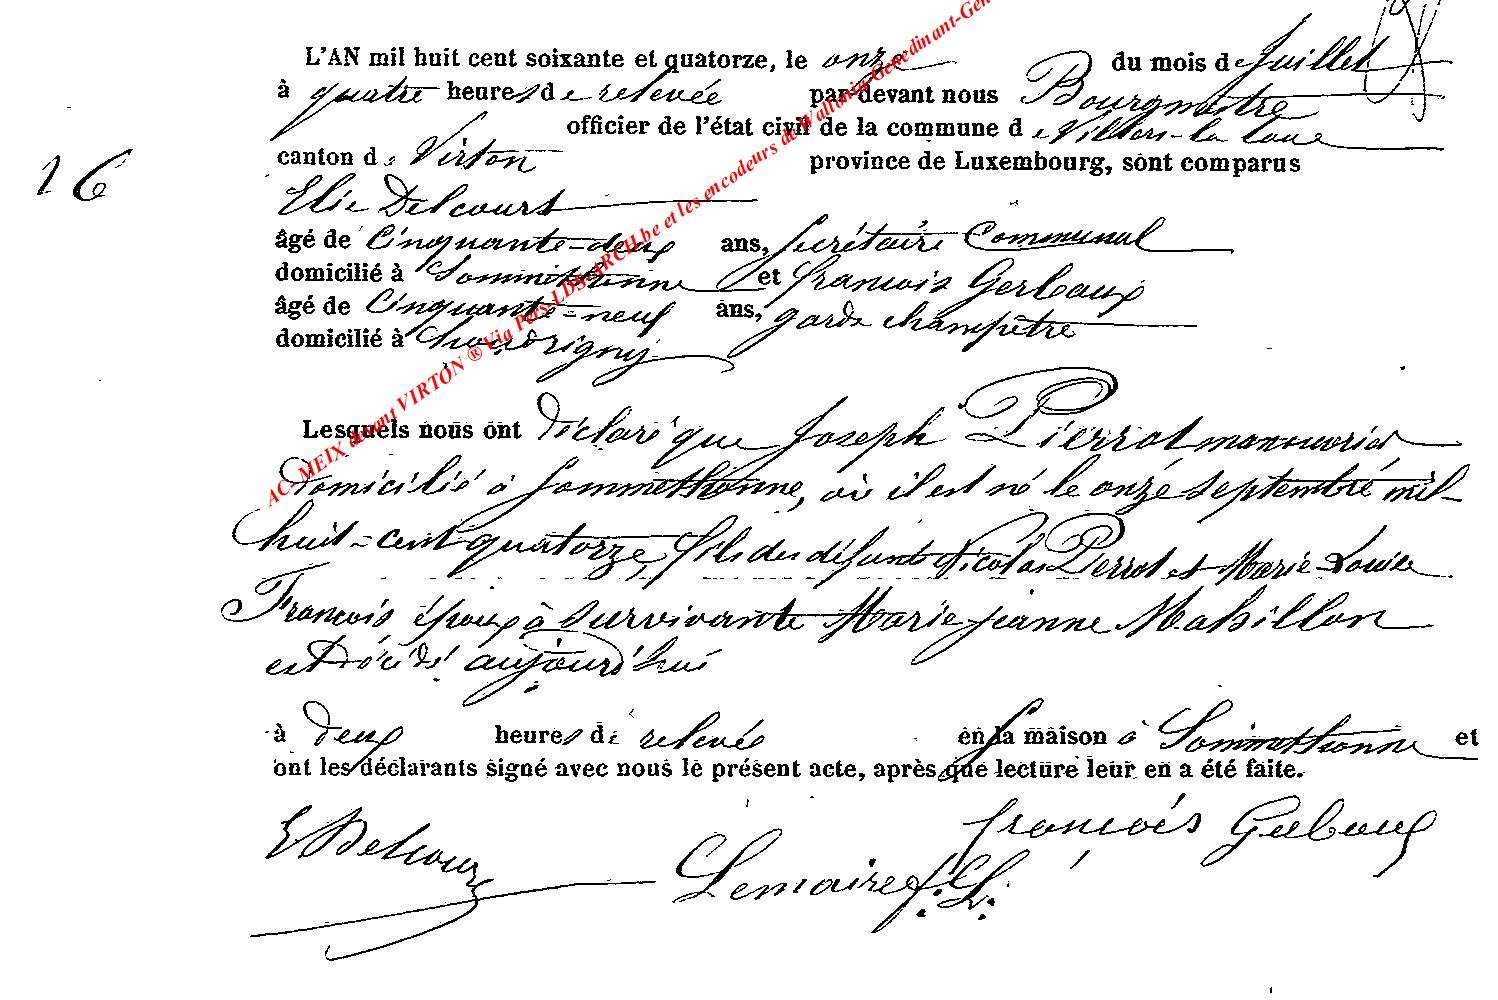 L'AN mil huit cent soixante et quatorze, le onze du mois de Juillet
à quatre heures de relevée par devant nous Bourgmestre
officier de l'état civil de la commune de Villers-la-loue
canton de Virton province de Luxembourg, sont comparus
16
Elie Delcourt
âgé de Cinquante-deux ans, Secrétaire Communal
domicilié à Sommethonne et françois Gerbaux
âgé de Cinquante-neuf ans, garde champêtre
domicilié à
Lesquels nous ont déclaré que Joseph Pierrot manouvrier
domicilié à Sommethonne, où il est né le onze septembre mil
huit-cent quatorze, fils des défunts Nicolas Pierrot et Marie-Louise
François époux à survivante Marie jeanne Mabillon
est décédé aujourd'hui
à deux heures de relevée en sa maison à Sommethonne et
ont les déclarants signé avec nous le présent acte, après que lecture leur en a été faite.
E Delcourt Lemaire f. L. françois Gerbaux
AC-MEIX devant VIRTON ® Via Prts-LDS-ARCH.be et les encodeurs de Wallonia-Genedinant-Gen